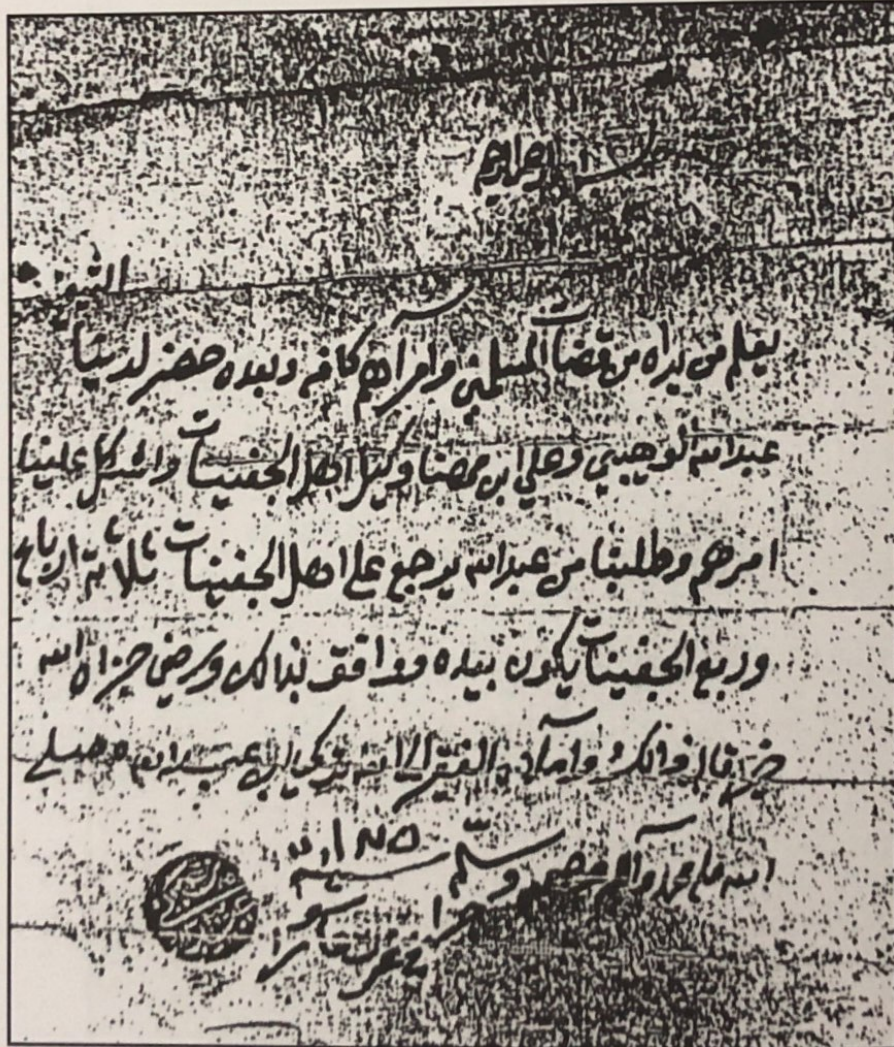 بسم الله الرحمن الرحيم
يعلم من يراه من قضات المسلمين وامرآهم كافه وبعده حضر لدينا
عبدالله الوهيبي وعلي ابن مهنا وكيل اهل الجفينات واشكل علينا
امرهم وطلبنا من عبدالله يرجع على اهل الجفينات ثلاثة ارباع
وربع الجفينات يكون بيده ووافق بذالك ورضي جزاه الله
خير قال ذالك وأملاه الفقير الى الله تركي ابن عبدالله وصلى
الله على محمد وآله وصحبه وسلم